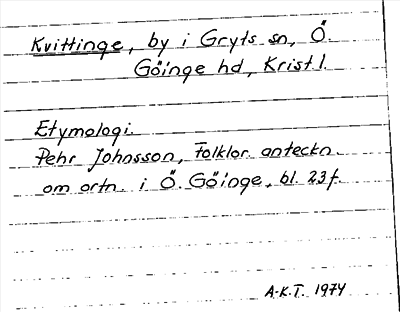 Kvittinge, by i Gryts sn, Ö.
Göinge hd, Krist l.
Etymologi.
Pehr Johnsson, Folklor. anteckn.
om ortn. i Ö. Göinge, bl. 23f.
A-K.T. 1974